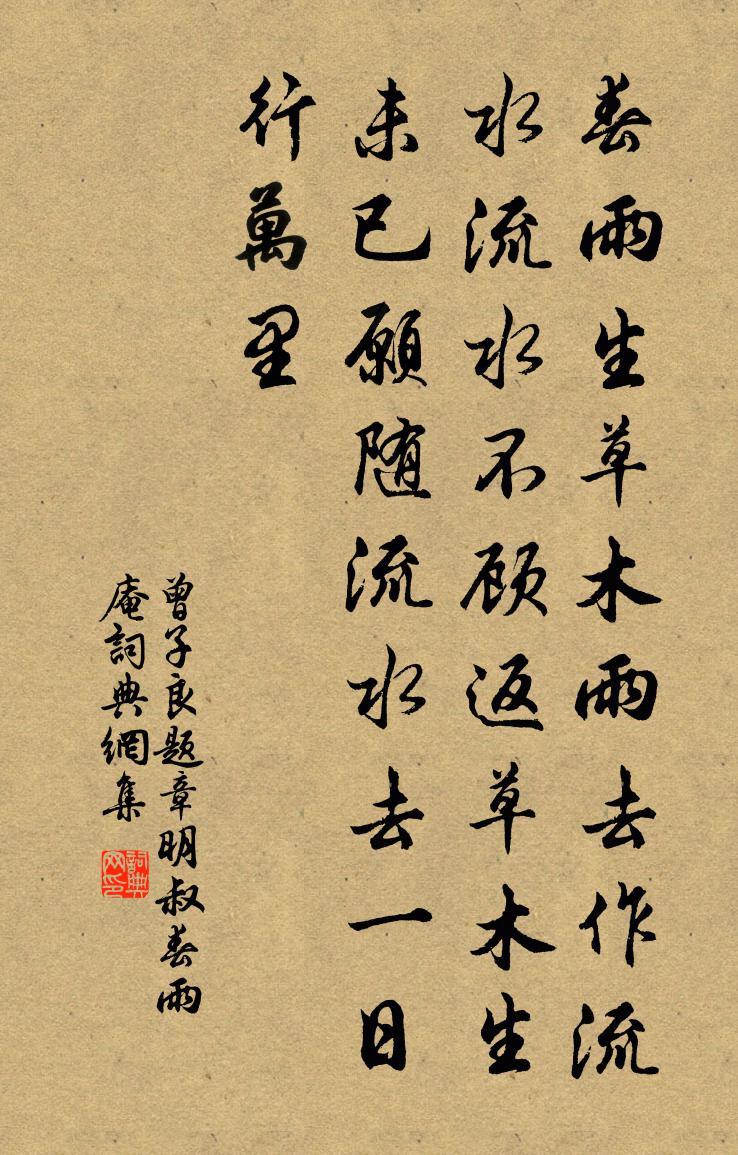 春雨生草木雨去作流
水流水不顾返草木生
未已願随流水去一日
行萬里
曾子良题章明叔春雨
庵詞典網集
詞典网印